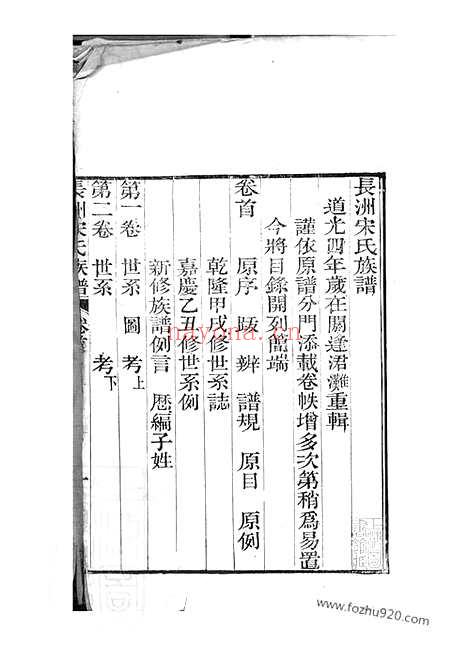 長洲宋氏族譜
道光四年歲在閼逢涒灘重輯
謹依原譜分門添載卷帙增多次第稍爲易置
今將目錄開列簡端
卷首 原序 跋 辨 譜規 原目 原例
乾隆甲戌修世系誌
嘉慶乙丑修世系例
新修族譜例言 歷編子姓
第一卷 世系 圖 考上
第二卷 世系 考下
長洲宋氏族譜 卷首 一
nayona.cn
www.fozhu920.com